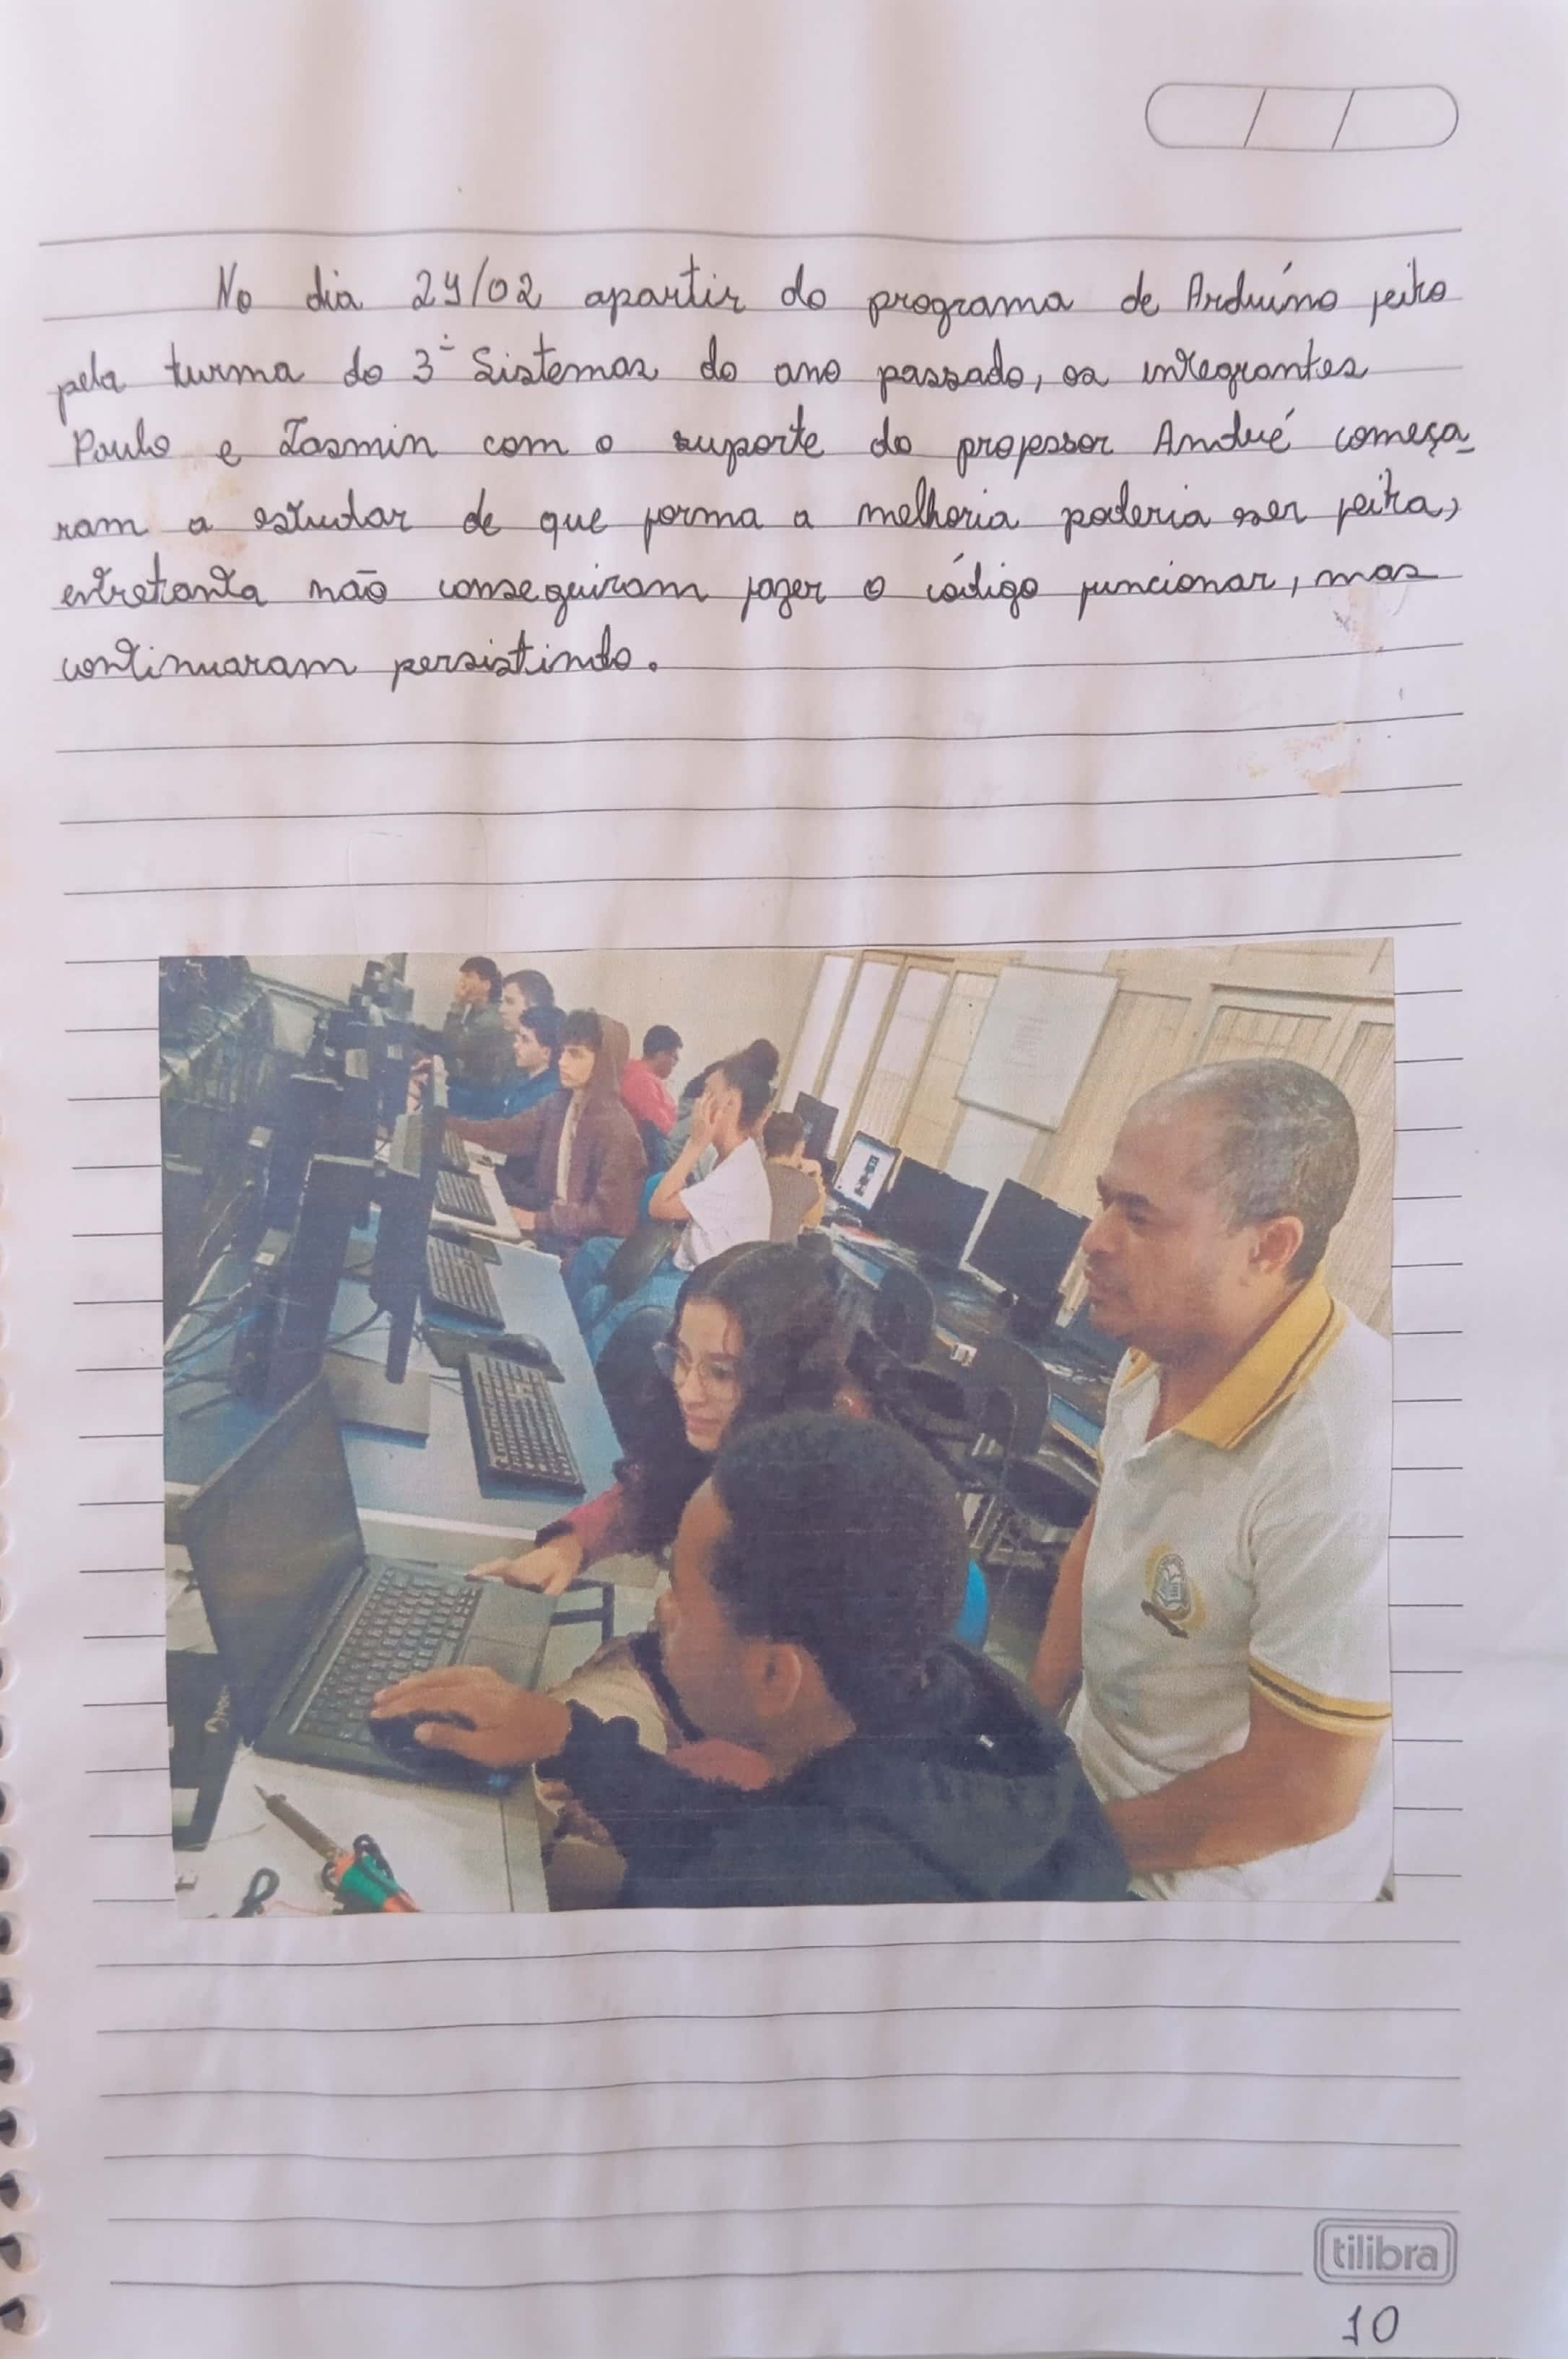 No dia 29/02 apartir do programa de Arduíno feito
pela turma do 3º Sistemas do ano passado, os integrantes
Paulo e Iasmin com o suporte do professor André começa-
ram a estudar de que forma a melhoria poderia ser feita,
entretanto não conseguiram fazer o código funcionar, mas
continuaram persistindo.
tilibra
10